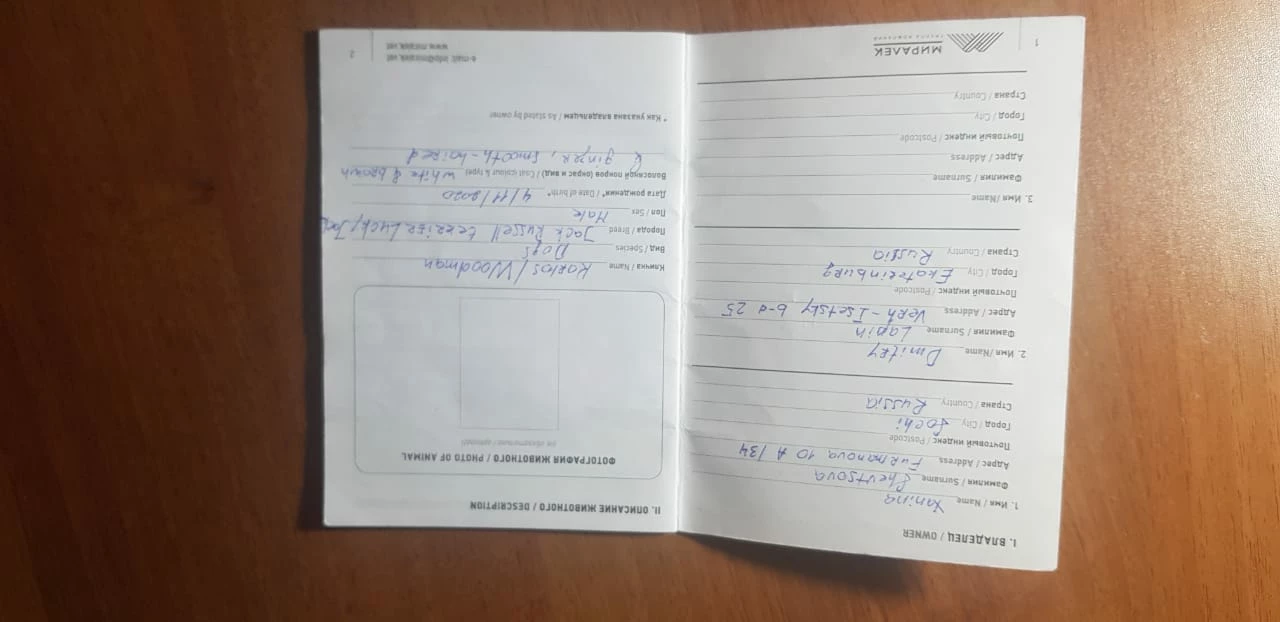 I. ВЛАДЕЛЕЦ / OWNER
1. Имя / Name Yanina
Фамилия / Surname Shevtsova
Адрес / Address Furmanova 10 A / 34
Почтовый индекс / Postcode
Город / City Sochi
Страна / Country Russia
2. Имя / Name Dmitry
Фамилия / Surname Lapin
Адрес / Address Verh-Isetsky b-d 25
Почтовый индекс / Postcode
Город / City Ekaterinburg
Страна / Country Russia
3. Имя / Name
Фамилия / Surname
Адрес / Address
Почтовый индекс / Postcode
Город / City
Страна / Country
1
МИРАЛЕК
ГРУППА КОМПАНИЙ
II. ОПИСАНИЕ ЖИВОТНОГО / DESCRIPTION
ФОТОГРАФИЯ ЖИВОТНОГО / PHOTO OF ANIMAL
(не обязательно / optional)
Кличка / Name Karlos / Woodman
Вид / Species Dogs
Порода / Breed Jack Russell terrier Lucky Jack
Пол / Sex Male
Дата рождения* / Date of birth* 4/11/2020
Волосяной покров (окрас и вид) / Coat (colour & type) white & brown
& ginger, smooth-haired
* Как указана владельцем / As stated by owner
e-mail: info@miralek.vet
www.miralek.vet
2